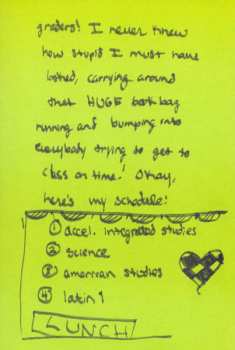 graders! I never knew
how stupid I must have
looked, carrying around
that HUGE book bag
running and bumping into
everybody trying to get to
class on time! Okay,
here's my schedule:
① accel. integrated studies
② science
③ american studies
④ latin 1
LUNCH